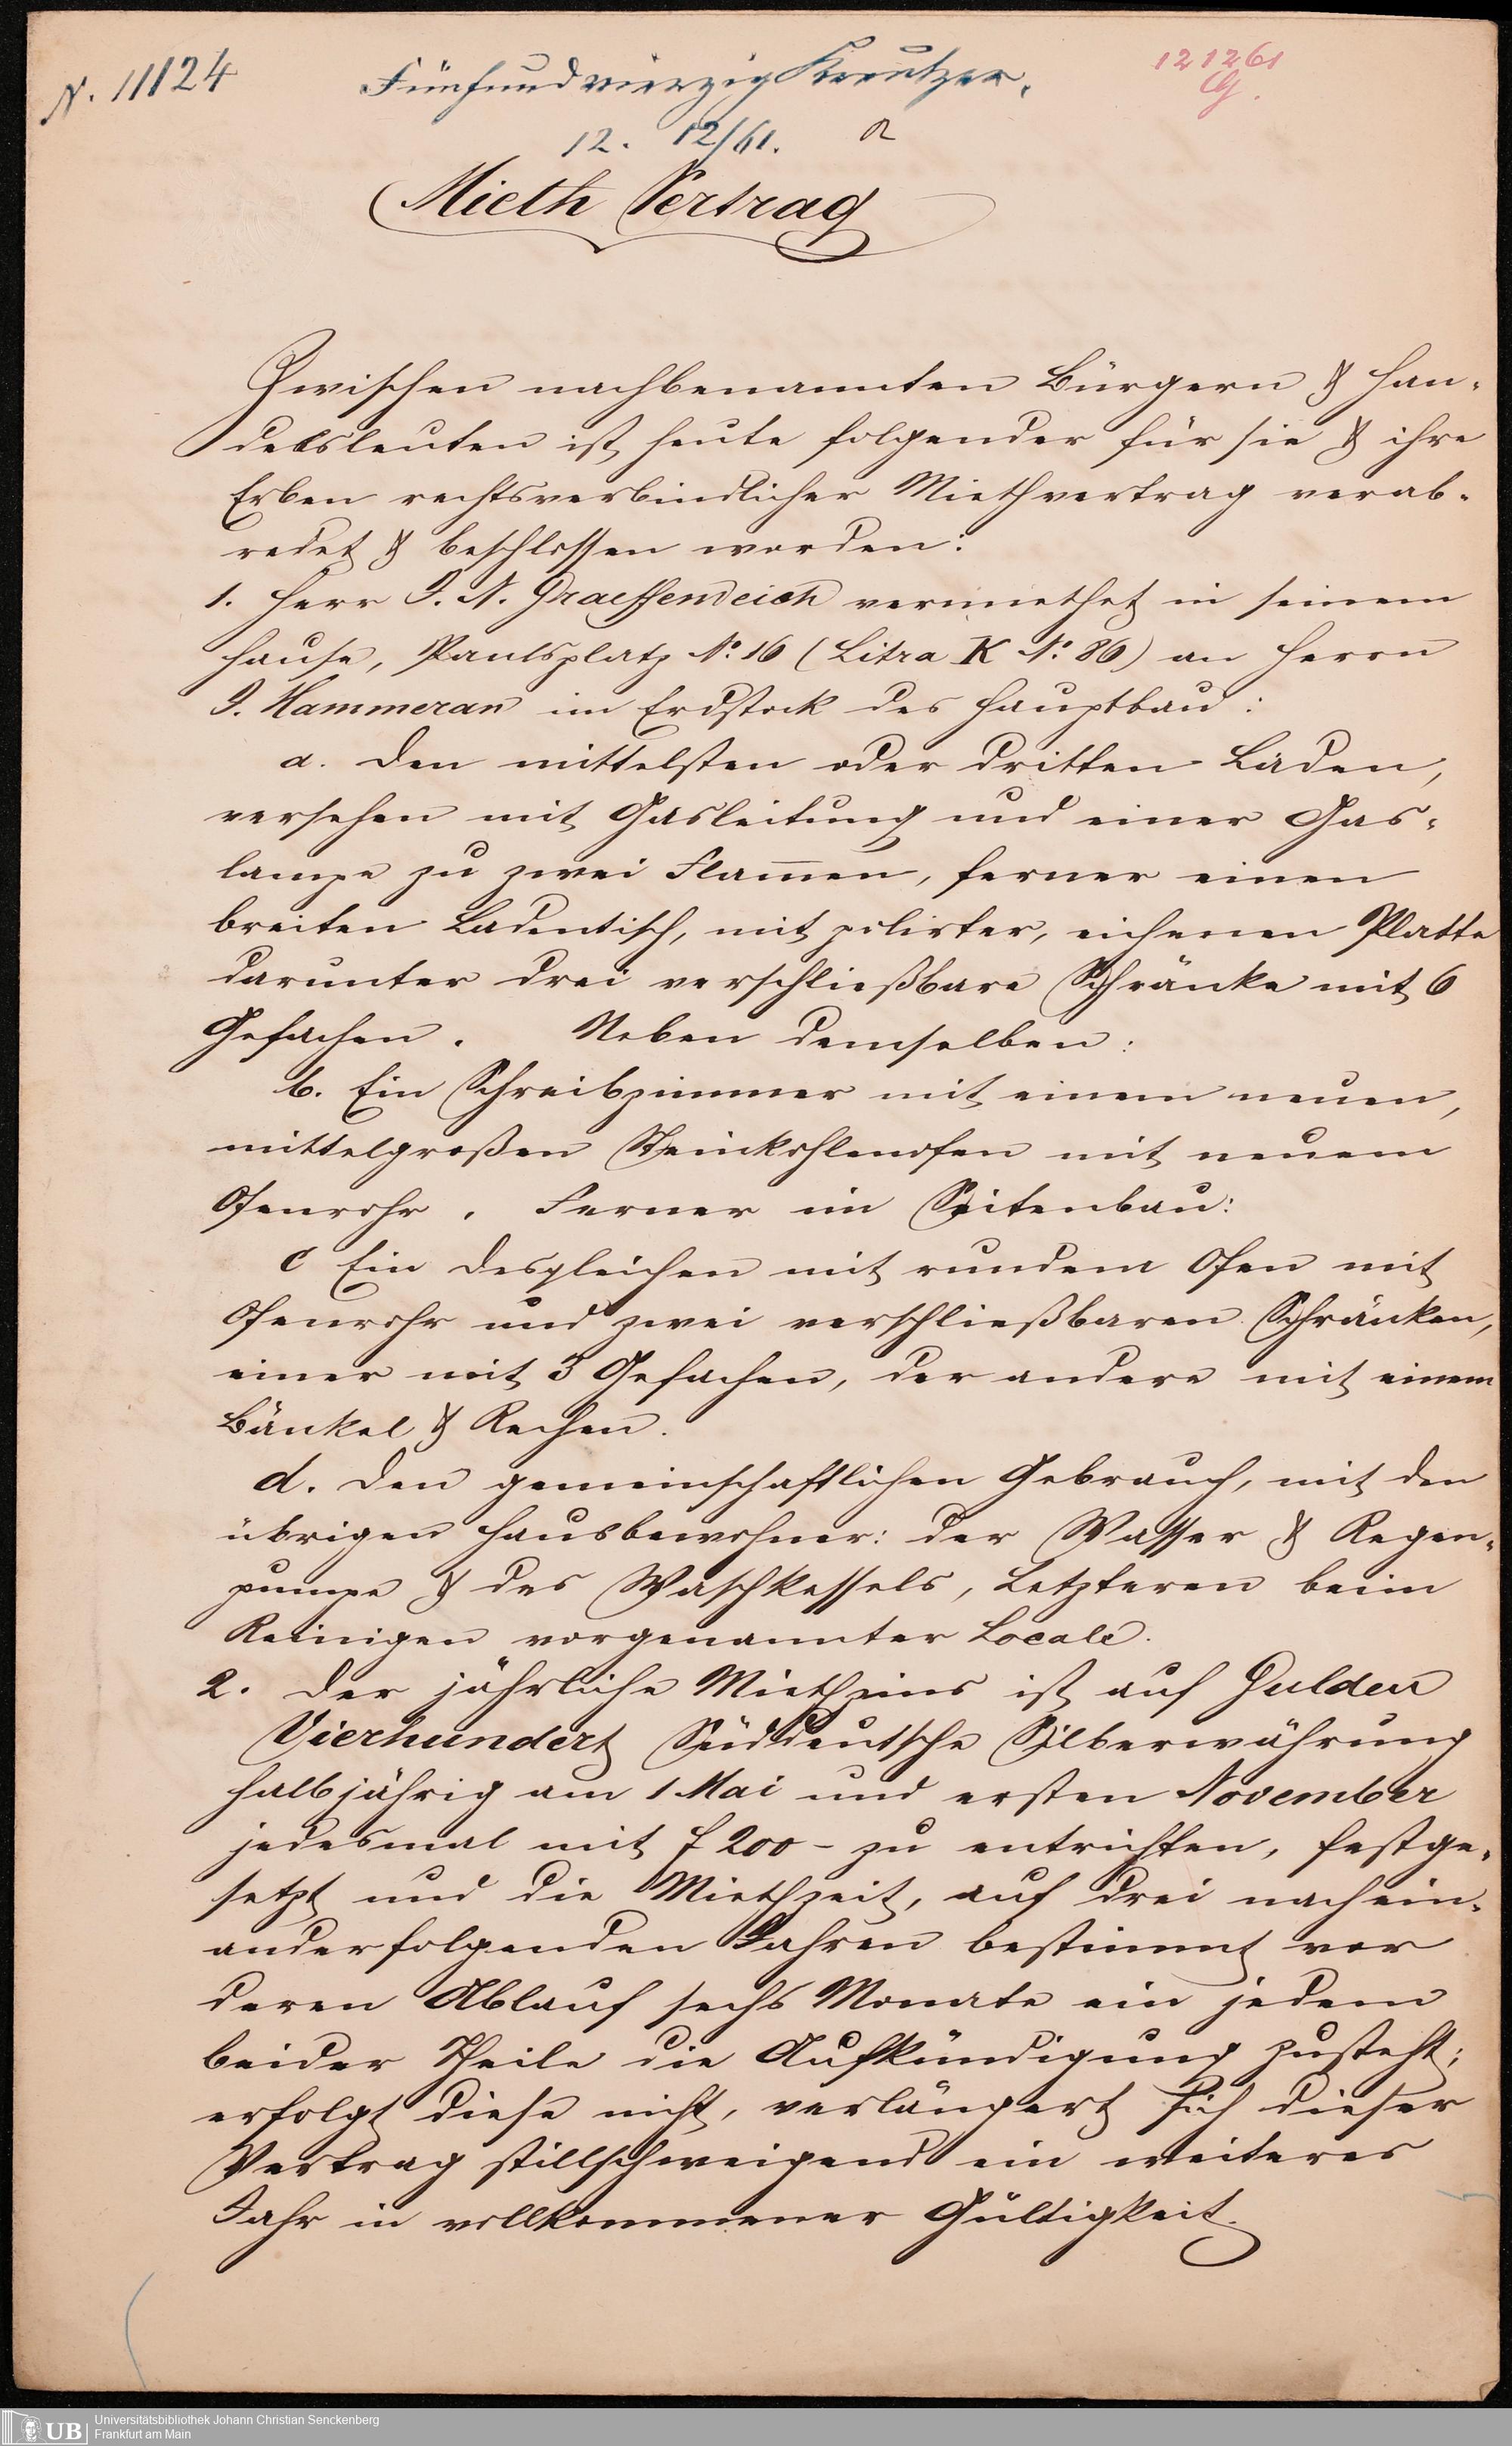 N. 11124
Fünfundvierzig Kreutzer.
12 12 61
12. 12/61.
Mieth Vertrag
Zwischen nachbenannten Bürgern & Han-
delsleuten ist heute folgender für sie & ihre
Erben rechtsverbindlicher Miethvertrag verab-
redet & beschlossen worden:
1. Herr J. N. Graeffendeich vermiethet in seinem
Hause, Paulsplatz No. 16 (Litra K No. 86) an Herrn
J. Hammeran im Erdstock des Hauptbau:
a. Den mittelsten oder dritten Laden,
versehen mit Gasleitung und einer Gas-
lampe zu zwei Flam̅en, ferner einen
breiten Ladentisch, mit polirter, eichenen Platte
darunter drei verschließbare Schränke mit 6
Gefachen. Neben demselben:
b. Ein Schreibzimmer mit einem neuen,
mittelgroßen Steinkohlenofen mit neuem
Ofenrohr. Ferner im Seitenbau:
c Ein desgleichen mit rundem Ofen mit
Ofenrohr und zwei verschließbaren Schränken,
einer mit 3 Gefachen, der andere mit einem
Bänkel & Rechen.
d. Den gemeinschaftlichen Gebrauch, mit den
übrigen Hausbewohner: der Wasser & Regen-
pumpe & des Waschkessels, Letzteren beim
Reinigen vorgenannter Locale.
2. Der jährliche Miethzins ist auf Gulden
Vierhundert Süddeutsche Silberwährung
halbjährig am 1 Mai und ersten November
jedesmal mit f 200 – zu entrichten, festge-
setzt und die Miethzeit, auf drei nachein-
anderfolgenden Jahren bestimmt vor
deren Ablauf sechs Monate ein jedem
beider Theile die Aufkündigung zusteht;
erfolgt diese nicht, verlängert sich dieser
Vertrag stillschweigend ein weiteres
Jahr in vollkommener Gültigkeit.
UB
Universitätsbibliothek Johann Christian Senckenberg
Frankfurt am Main